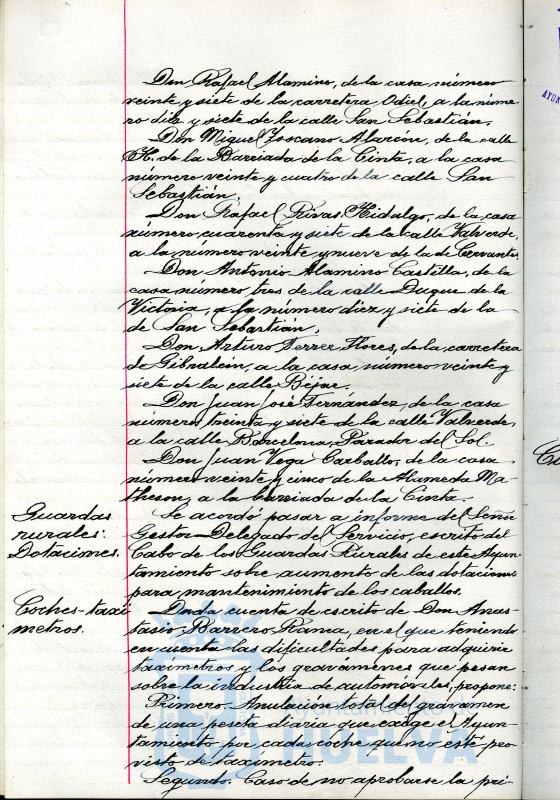 Don Rafael Alamino, de la casa número
veinte y siete de la carretera Odiel, a la núme-
ro diez y siete de la calle San Sebastián.
Don Miguel Toscano Alarcón, de la calle
H. de la Barriada de la Cinta, a la casa
número veinte y cuatro de la calle San
Sebastián.
Don Rafael Rivas Hidalgo, de la casa
número cuarenta y siete de la calle Valverde,
a la número veinte y nueve de la de Cervantes.
Don Antonio Alamino Castilla, de la
casa número tres de la calle Duque de la
Victoria, a la número diez y siete de la
de San Sebastián.
Don Arturo Ferrer Flores, de la carretera
de Gibraleón, a la casa número veinte y
siete de la calle Béjar.
Don Juan José Fernández, de la casa
número treinta y siete de la calle Valverde,
a la calle Barcelona, Parador del Sol.
Don Juan Vega Carballo, de la casa
número veinte y cinco de la Alameda Ma-
theson, a la barriada de la Cinta.
Guardas
rurales.
Dotaciones.
Se acordó pasar a informe del Señor
Gestor Delegado del Servicio, escrito del
Cabo de los Guardas Rurales de este Ayun-
tamiento sobre aumento de las dotaciones
para mantenimiento de los caballos.
Coches-taxí
metros.
Dada cuenta de escrito de Don Anas-
tasio Barrero Rama, en el que teniendo
en cuenta las dificultades para adquirir
taxímetros y los gravámenes que pesan
sobre la industria de automóviles, propone:
Primero. Anulación total del gravamen
de una peseta diaria que exige el Ayun-
tamiento por cada coche que no esté pro-
visto de taxímetro.
Segundo. Caso de no aprobarse la pri-
HUELVA